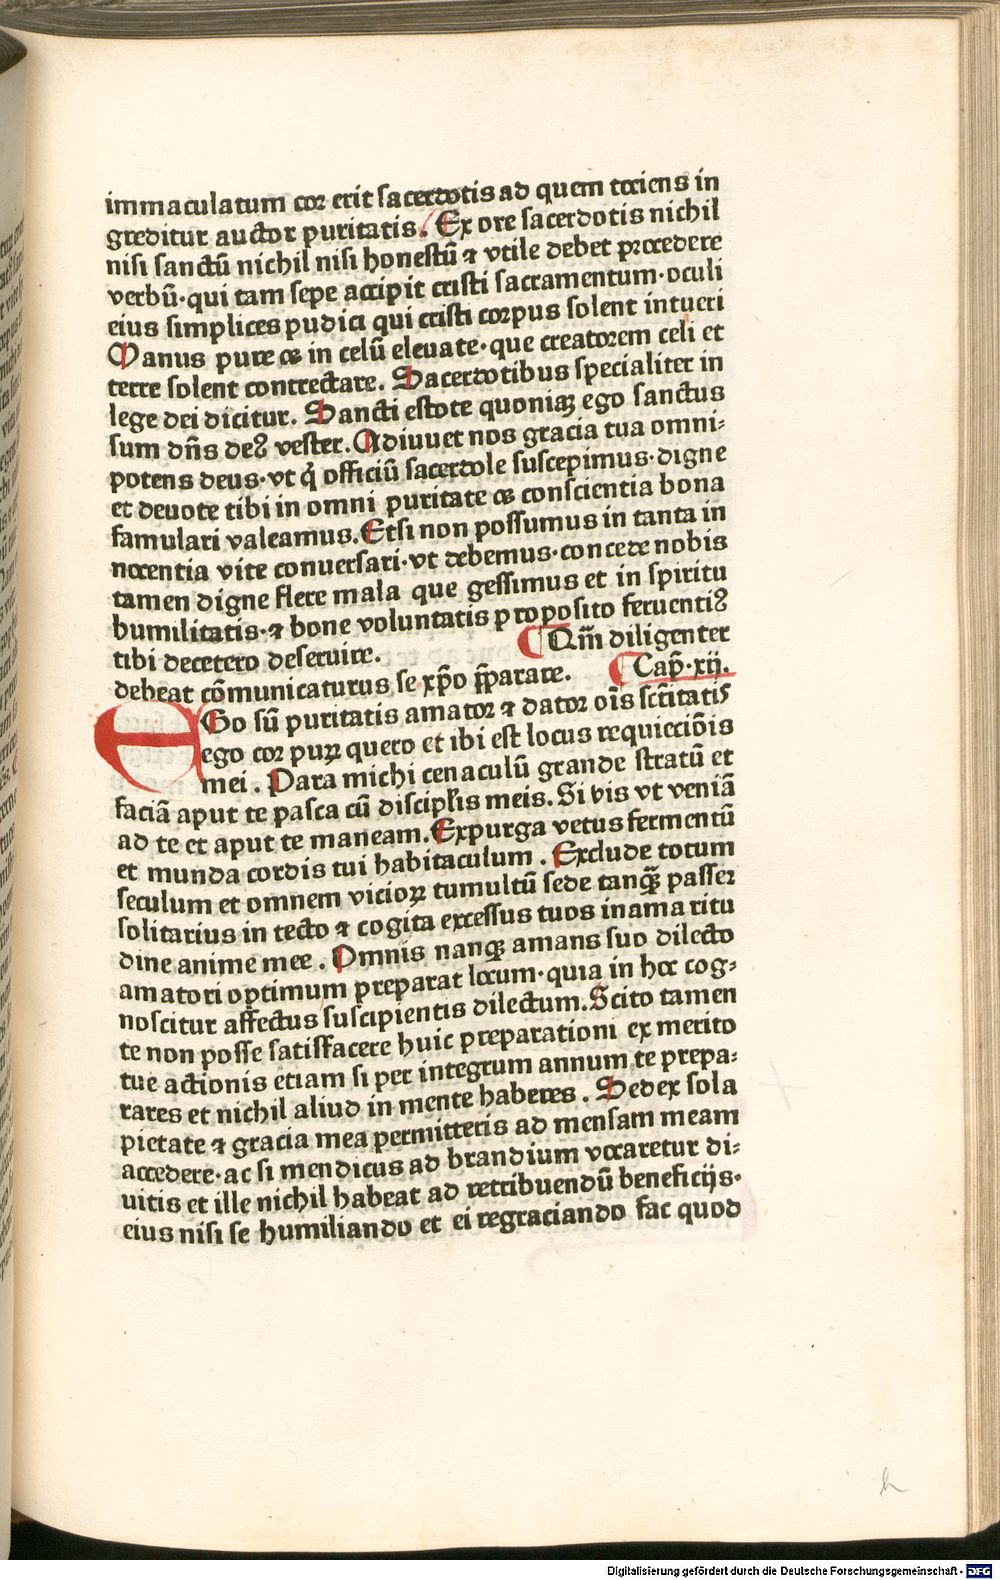 immaculatum cor erit sacerdotis ad quem tociens in
greditur auctor puritatis. Ex ore sacerdotis nichil
nisi sanctū nichil nisi honestū ⁊ vtile debet procedere
verbū·qui tam sepe accipit cristi sacramentum·oculi
eius simplices pudici qui cristi corpus solent intueri
Manus pure ac in celū eleuate·que creatorem celi et
terre solent contrectare. Sacerdotibus specialiter in
lege dei dicitur. Sancti estote quoniaꝫ ego sanctus
sum dn̄s deꝰ vester. Adiuuet nos gracia tua omni⸗
potens deus·vt qͥ officiū sacerdole suscepimus·digne
et deuote tibi in omni puritate ac conscientia bona
famulari valeamus. Etsi non possumus in tanta in
nocentia vite conuersari·vt debemus·concede nobis
tamen digne flere mala que gessimus et in spiritu
humilitatis·⁊ bone voluntatis proposito feruentiꝰ
tibi decetero deseruire. Qm̄ diligenter
debeat cōmunicaturus se xp̄o p̄parare. Cap̄·xij.
EGo sū puritatis amator ⁊ dator oīs sctītatis
ego cor puꝝ quero et ibi est locus requiecōīs
mei. Para michi cenaculū grande stratū et
faciā aput te pasca cū discipl̄is meis. Si vis vt veniā
ad te et aput te maneam. Expurga vetus fermentū
et munda cordis tui habitaculum. Exclude totum
seculum et omnem vicioꝝ tumultū sede tanqꝫ passer
solitarius in tecto ⁊ cogita excessus tuos in ama ritu
dine anime mee. Omnis nanqꝫ amans suo dilecto
amatori optimum preparat locum·quia in hoc cog⸗
noscitur affectus suscipientis dilectum. Scito tamen
te non posse satisfacere huic preparationi ex merito
tue actionis etiam si per integrum annum te prepa⸗
rares et nichil aliud in mente haberes. Sed ex sola
pietate ⁊ gracia mea permitteris ad mensam meam
accedere·ac si mendicus ad brandium vocaretur di⸗
uitis et ille nichil habeat ad retribuendū beneficijs·
eius nisi se humiliando et ei regraciando fac quod
h
Digitalisierung gefördert durch die Deutsche Forschungsgemeinschaft - DFG